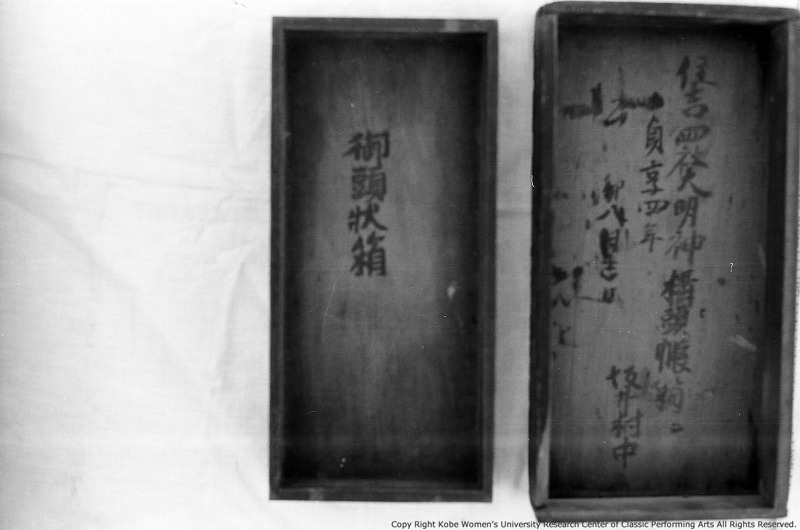 住吉四癸大明神㯮頭帳箱
貞享四年
卯八月吉日
坂井村中
御頭状箱
Copy Right Kobe Women's University Research Center of Classic Performing Arts All Rights Reserved.